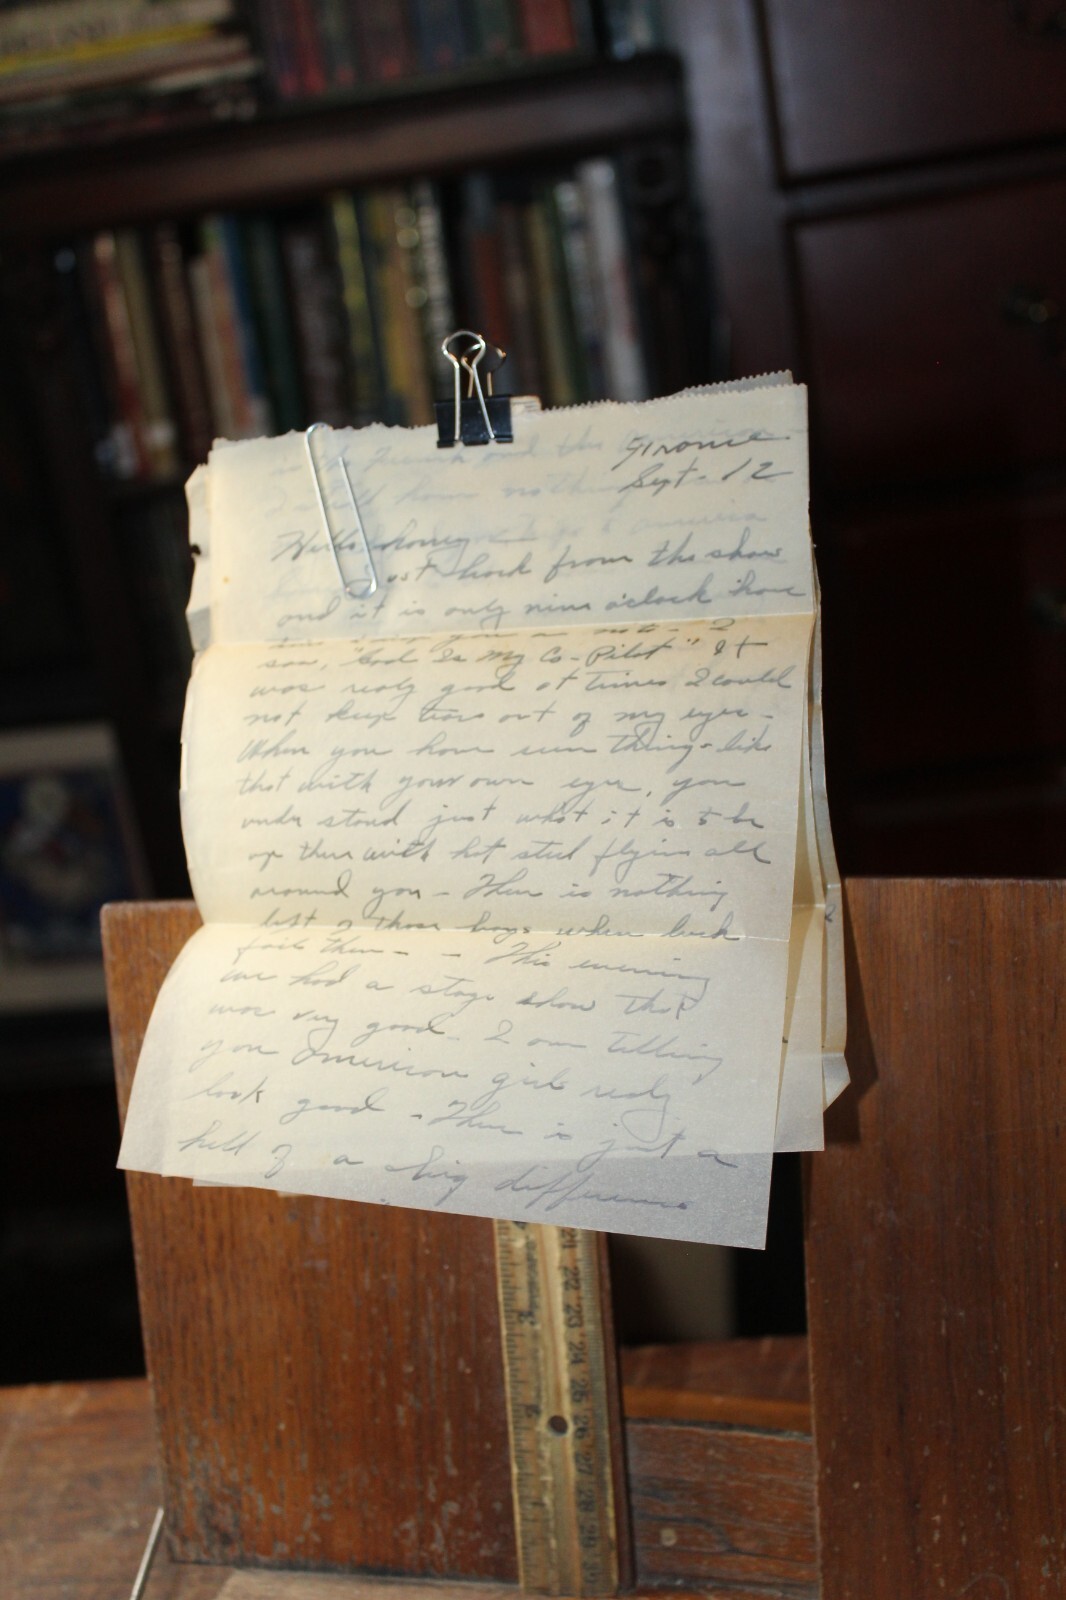 Sept. 12
Hello honey
Just back from the show
and it is only nine o'clock have
saw, "God Is My Co-Pilot" It
was realy good at times I could
not keep tears out of my eyes -
When you have seen things like
that with your own eyes, you
under stand just what it is to be
up there with hot steel flying all
around you - There is nothing
left of those boys when luck
fails them - - This evening
we had a stage show that
was very good - I am telling
you American girls realy
look good - There is just a
hell of a big difference
21 22 23 24 25 26 27 28 29